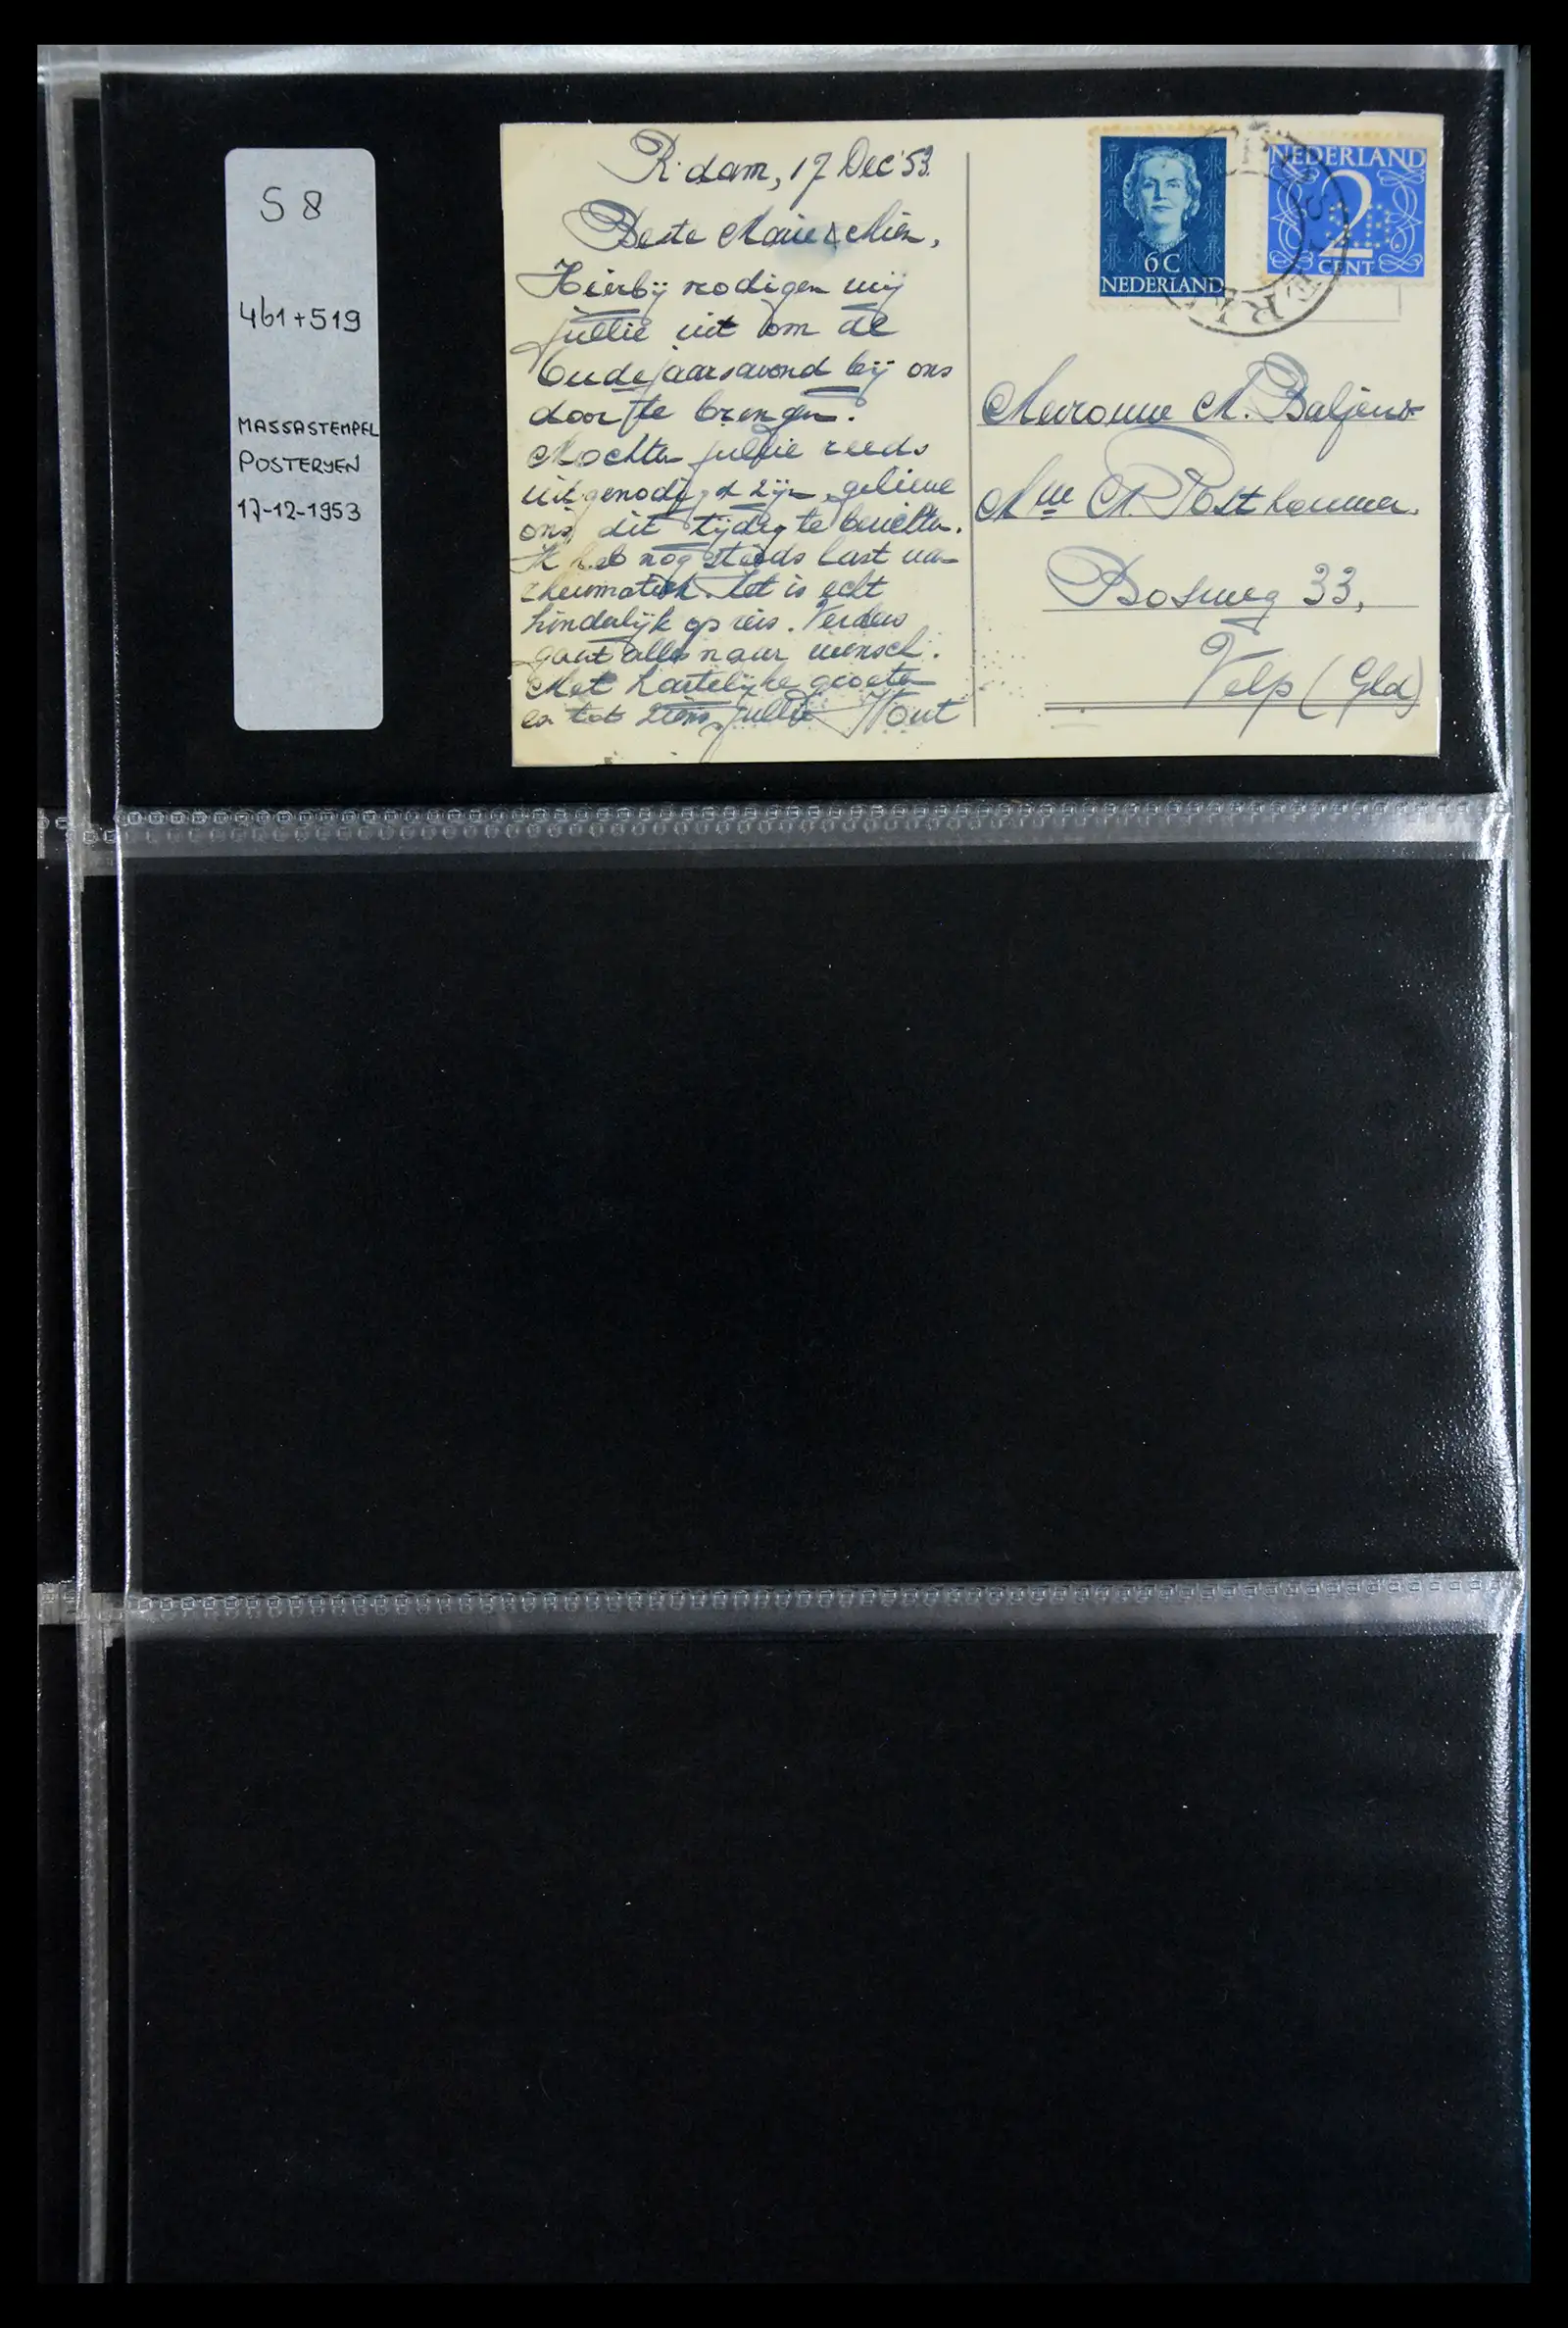 S 8
461+519
MASSASTEMPEL
POSTERYEN
17-12-1953
R·dam, 17 Dec '53.
Beste Marie & Mien,
Hierbij noodigen wij
jullie uit om de
Oudejaarsavond bij ons
door te brengen.
Mochten jullie reeds
uitgenodigd zijn, gelieve
ons dit tijdig te berichten.
Ik heb nog steeds last van
rheumatiek. Het is echt
hinderlijk op reis. Verders
gaat alles naar wensch.
Met hartelijke groeten
en tot ziens jullie Wout
6 C
NEDERLAND
NEDERLAND
2
CENT
Mevrouw M. Baljeu
Mw M. Posthouwer.
Bosweg 33,
Velp (Gld)